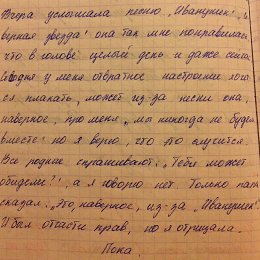 Вчера услышала песню „Иванушек", „
верная звезда" она так мне понравилась
что в голове целый день и даже сейчас
Сегодня у меня обратное настроение хоте
ся плакать, может из-за песни она,
наверное, про меня „мы никогда не будем
вместе" но я верю, что это случится.
Все родные спрашивают: „Тебя может
обидели?", а я говорю нет. Только папа
сказал: „Это, наверное, из-за „Иванушек".
И был отчасти прав, но я отрицала.
Пока.